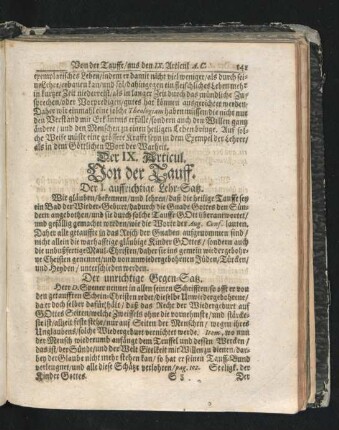 Von der Tauffe/ aus den IX. Articul A. C. 141
exemplarisches Leben/ indem er damit nicht viel weniger/ als durch sei-
ne Lehre/ erbauen kan/ und solt dahingegen ein fleischliches Leben mehr
in kurtzer Zeit niederreist/ als in langer Zeit durch das mündliche Zu-
sprechen/ oder Vorpredigen/ gutes hat können ausgerichtet werden.
Daher wir einmahl eine solche Theologiam haben müssen/ die nicht nur
den Verstand mit Erkäntnis erfülle/ sondern auch den Willen gantz
ändere/ und den Menschen zu einen heiligen Leben bringe. Auf sol-
che Weise müste eine grössere Krafft seyn in dem Exempel der Lehrer/
als in dem Göttlichen Wort der Warheit.
Der IX. Articul.
Von der Tauff.
Der 1. auffrichtige Lehr-Satz.
Wir gläuben/ bekennen/ und lehren/ daß die heilige Tauffe sey
ein Bad der Wieder-Geburt/ dadurch die Gnade Gottes den Sün-
dern angebothen/ und sie durch solche Tauffe GOtt überantwortet/
und gefällig gemacht werden/ wie die Worte der Aug. Conf. lauten.
Daher alle getauffte in das Reich der Gnaden auffgenommen sind/
nicht allein die warhafftig gläubige Kinder GOttes/ sondern auch
die unbußfertige Maul-Christen/ daher sie ins gemein wiedergebohr-
ne Christen genennet/ und von unwiedergebohrnen Jüden/ Türcken/
und Heyden/ unterschieden werden.
Der unrichtige Gegen-Satz.
Herr D. Spener nennet in allen seinen Schrifften/ so offt er von
den getaufften Schein-Christen redet/ dieselbe Unwiedergebohrne/
da er doch selber dafür hält/ daß das Recht der Wiedergeburt auf
GOttes Seiten/ welche Zweiffels ohne die vornehmste/ und stärcke-
ste ist/ allzeit feste stehe/ nur auf Seiten der Menschen/ wegen ihres
Unglaubens/ solche Wiedergeburt vernichtet werde. Item, wo nun
der Mensch wiederumb anfänge dem Teuffel und dessen Wercken/
das ist/ der Sünde/ und der Welt Eitelkeit mit Willen zu dienen/ dar-
bey der Glaube nicht mehr stehen kan/ so hat er seinen Tauff-Bund
verleugnet/ und alle diese Schätze verlohren/ pag. 102. Seeligk. der
Kinder Gottes. S 3 Der